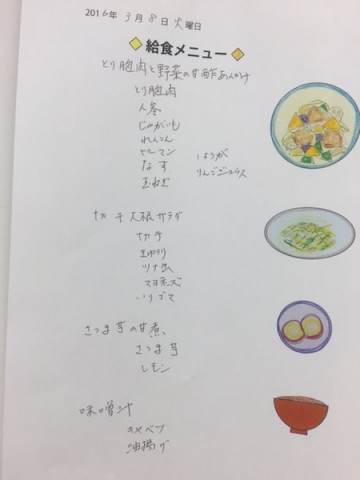 2016年 3月 8日 火曜日
給食メニュー
とり胸肉と野菜の甘酢あんかけ
とり胸肉
人参
じゃがいも
れんこん
ピーマン
なす しょうが
玉ねぎ りんごジュース
切干大根サラダ
切干
きゅうり
ツナ缶
マヨネーズ
いりゴマ
さつま芋の甘煮
さつま芋
レモン
味噌汁
キャベツ
油揚げ